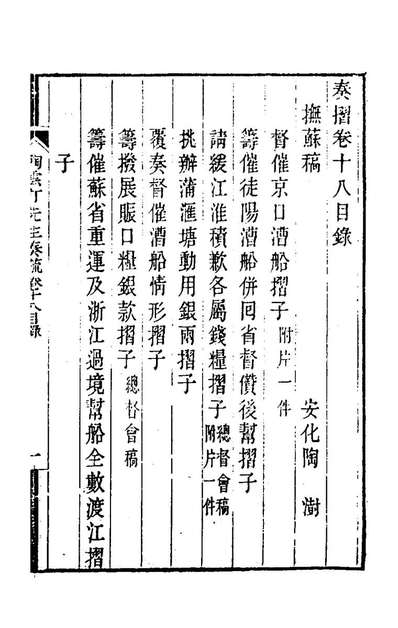 奏摺卷十八目錄
撫蘇稿　安化陶澍
督催京口漕船摺子附片一件
籌催徒陽漕船併囘省督儹後幫摺子
請緩江淮積歉各屬錢糧摺子總督會稿附片一件
挑辦蒲滙塘動用銀兩摺子
覆奏督催漕船情形摺子
籌撥展賑口糧銀款摺子總督會稿
籌催蘇省重運及浙江過境幫船全數渡江摺
子
陶雲汀先生奏疏卷十八目錄
一